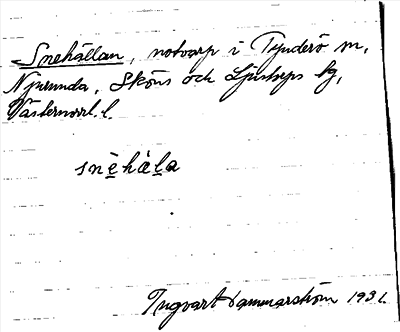 Snehällan, notvarp i Tynderö sn,
Njurunda, Sköns och Ljustorps tg,
Västernorrl. l.
snèhàla
Ingvart Hammarström 1931.